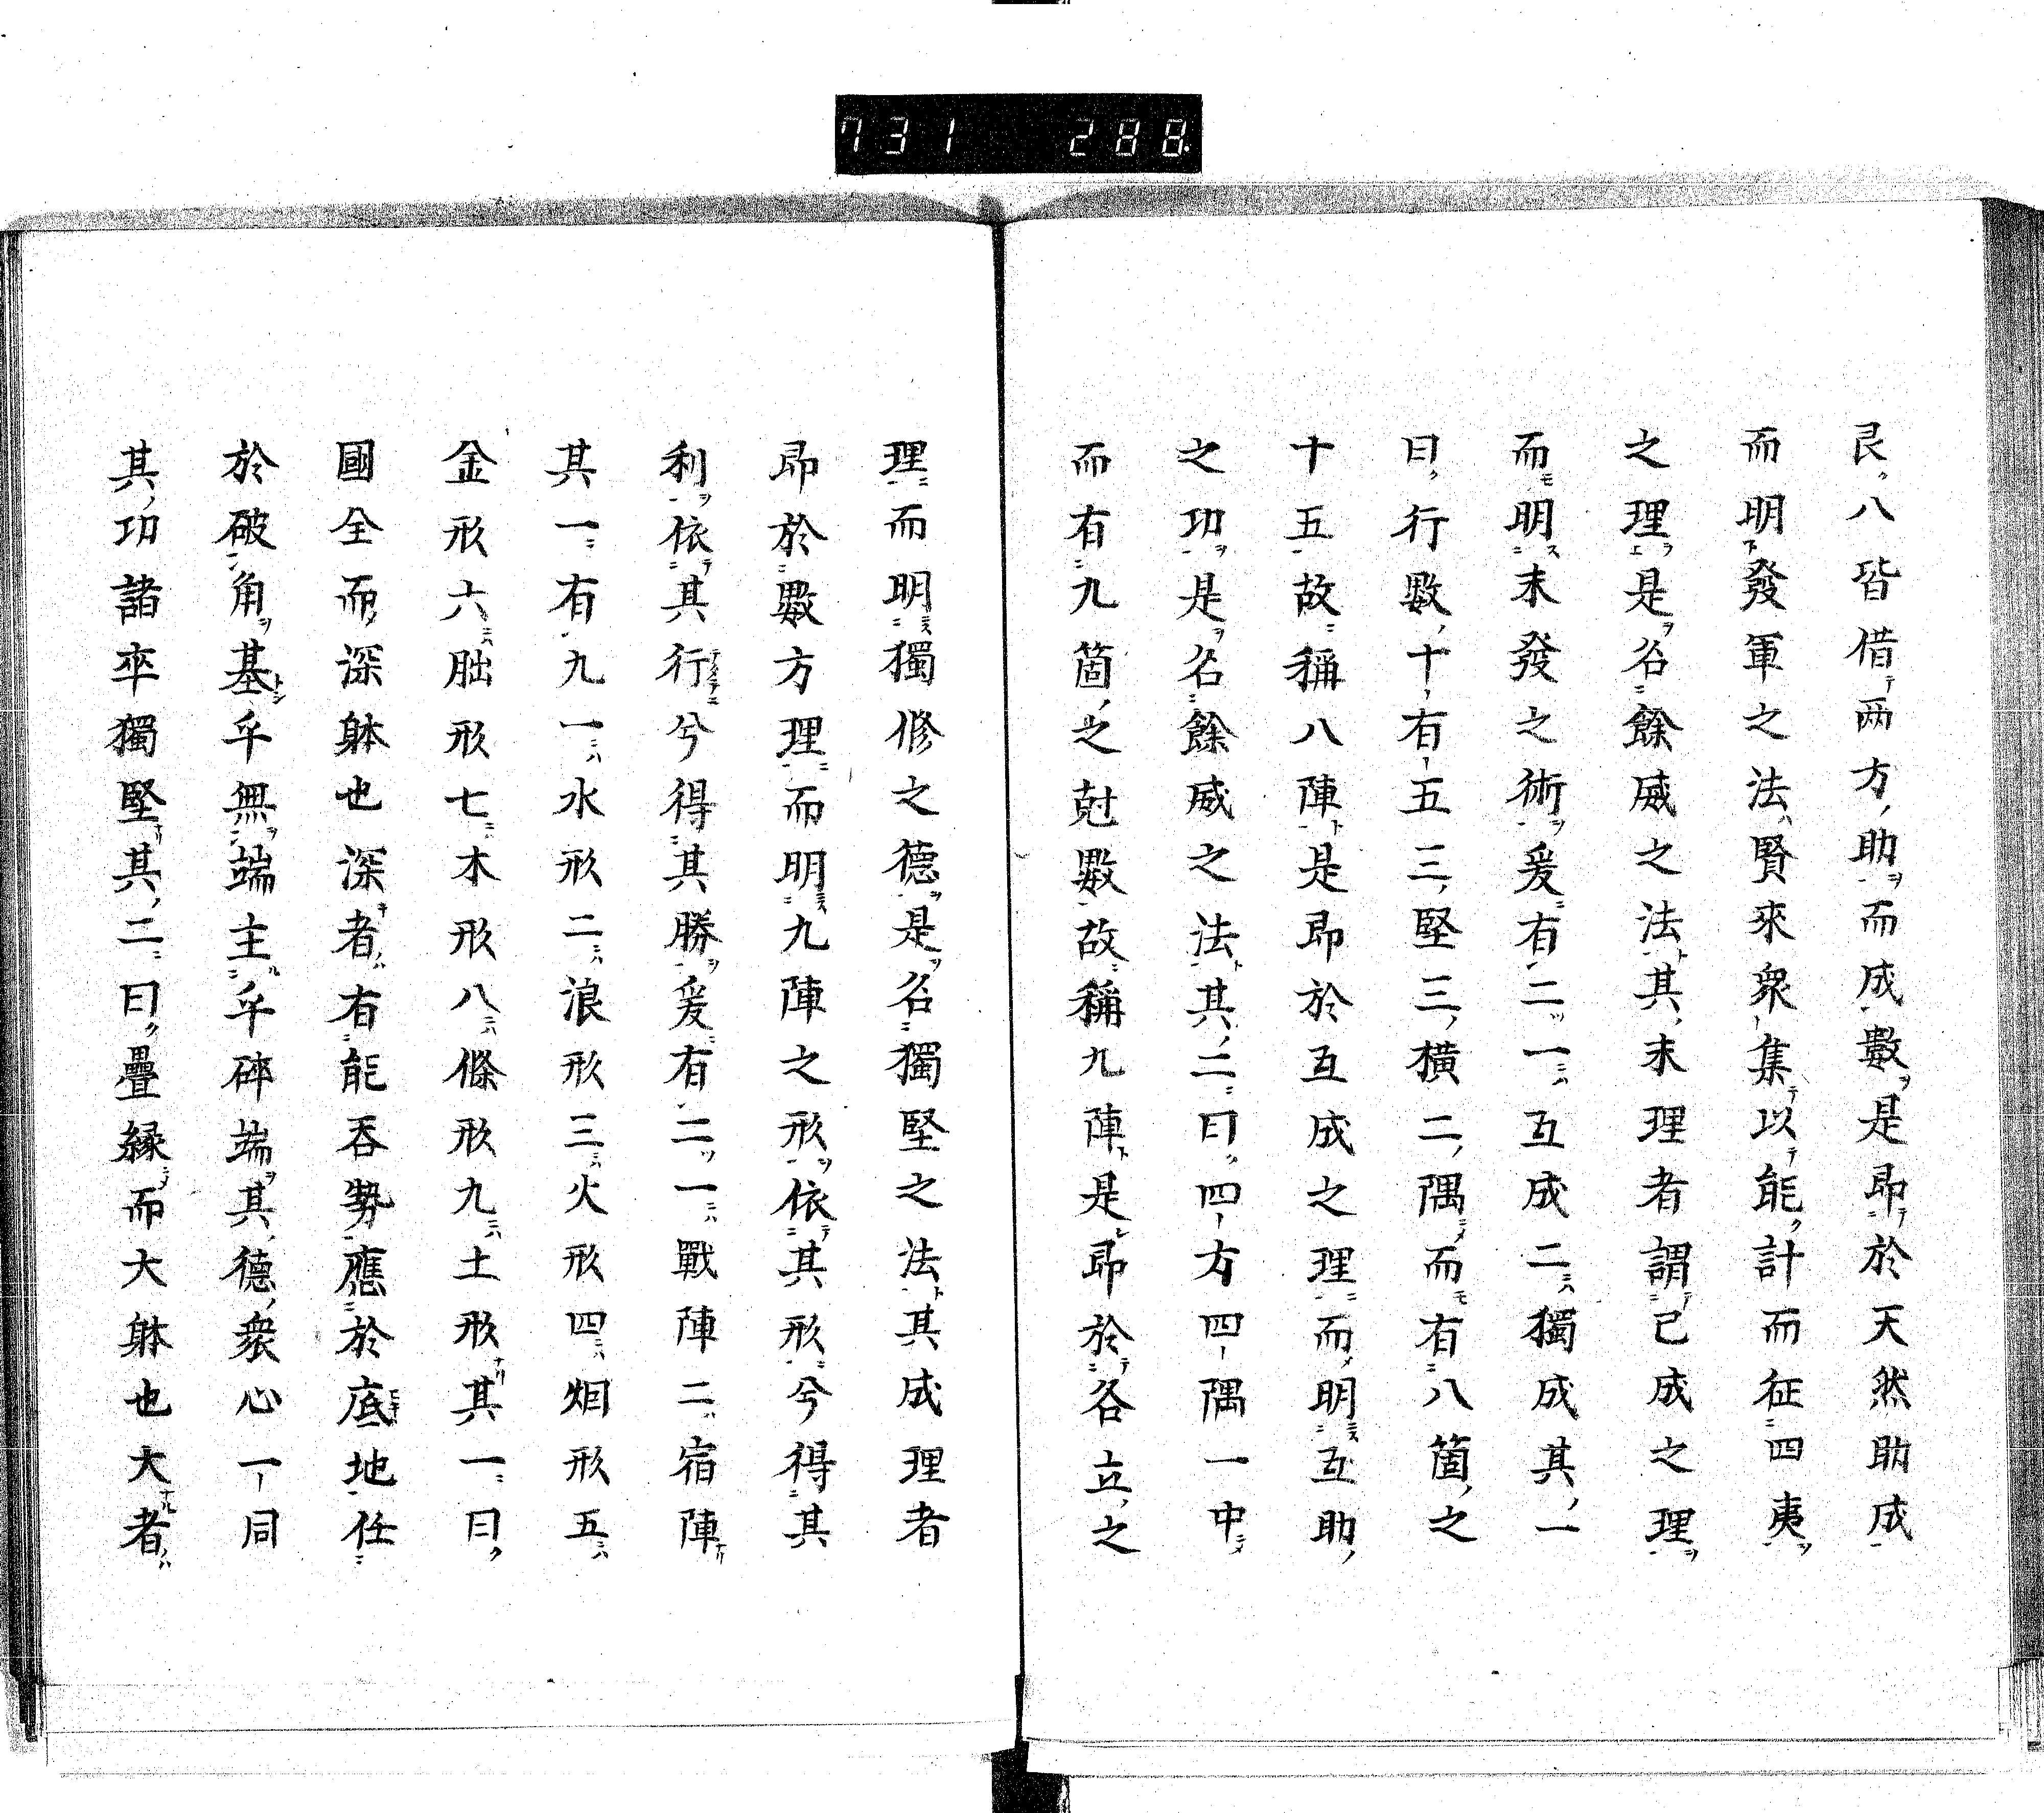 731 288
艮八皆借両方助而成數是即於天然助成
而明發軍之法賢來衆集以能計而征四夷
之理是名餘威之法其末理者謂己成之理
而明末發之術爰有二一互成二獨成其一
曰行數十有五三堅三横二隅而有八箇之
十五故稱八陣是即於互成之理而明互助
之功是名餘威之法其二曰四方四隅一中
而有九箇之尅數故稱九陣是即於各立之
理而明獨修之德是名獨堅之法其成理者
即於數方理而明九陣之形依其形兮得其
利依其行兮得其勝爰有二一戰陣二宿陣
其一有九一水形二浪形三火形四烟形五
金形六朏形七木形八條形九土形其一曰
國全而深躰也深者有能吞勢應於底地任
於破角基乎無端主乎碎端其德衆心一同
其功諸卒獨堅其二曰疊縁而大躰也大者